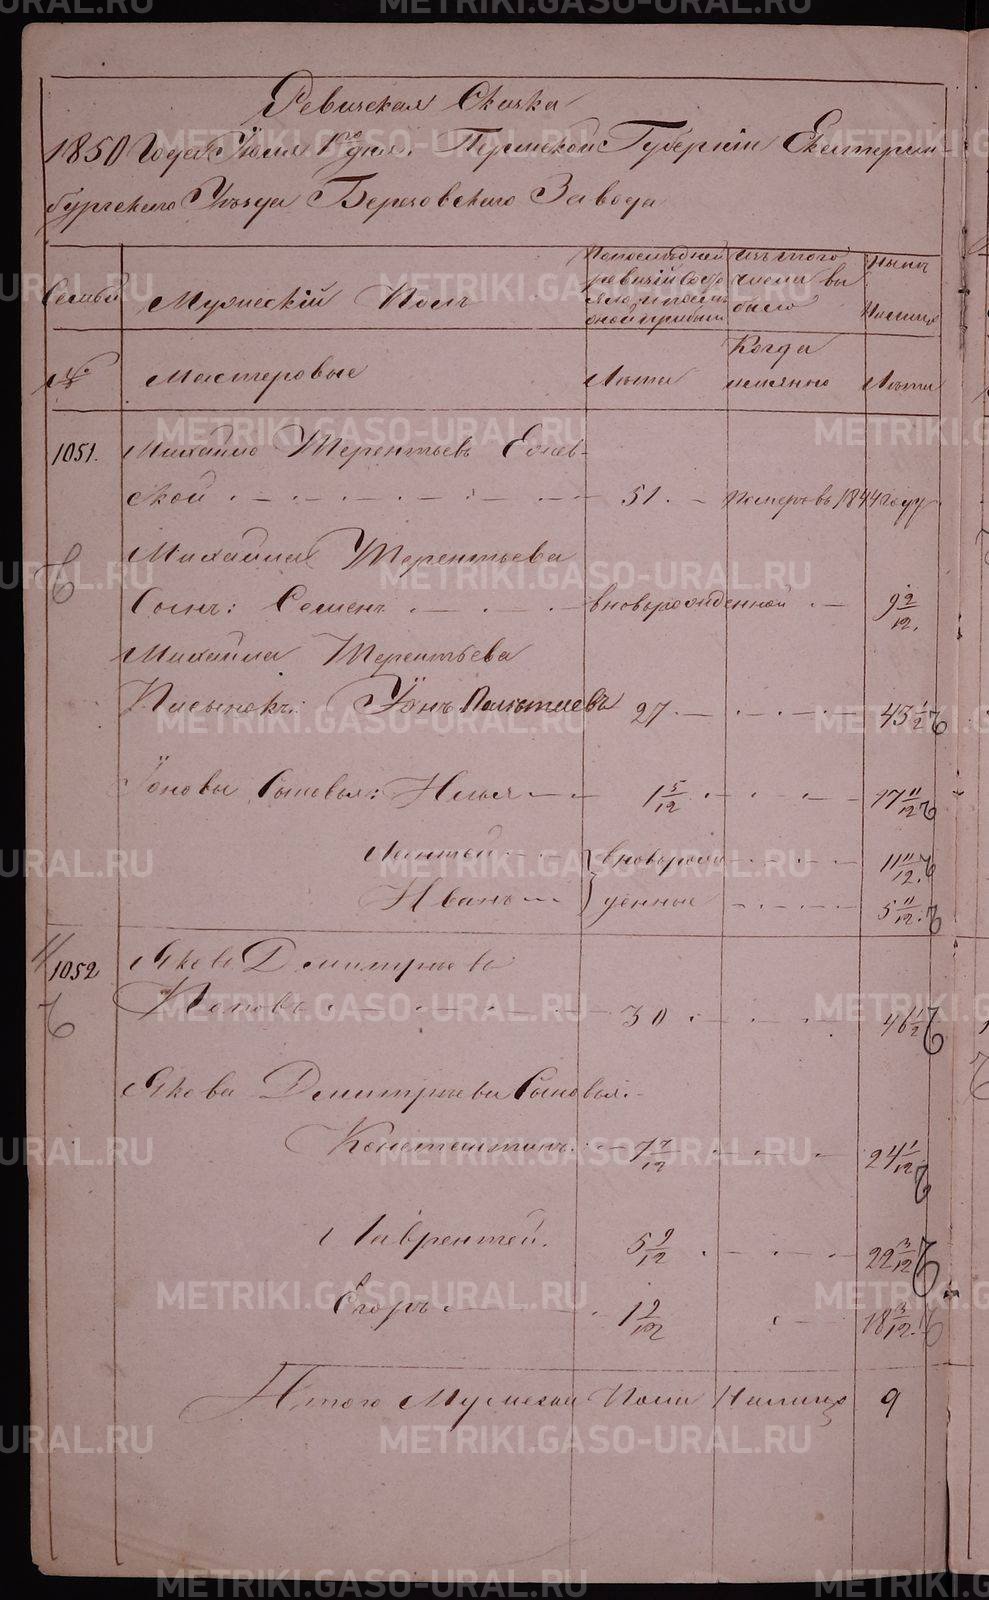 Ревизская Сказка
1850 Года Июля 1го дня. Пермской Губернии Екатерин-
бургского Уѣзда Березовского Завода
Семьи
Мужескій Полъ
По последней ревизіи состояло и после оной прибыло
Изъ того числа выбыло
Нынѣ на лицо
№
Мастеровые
Лѣта
Когда именно
Лѣта
1051.
Михайло Терентьевъ
ской
51.
Померъ въ 1844 году
Михайла Терентьева
Сынъ: Семенъ
вноворожденной
9 9/12.
Михайла Терентьева
Пасынокъ: Іонъ
27
43 1/2
Іоновы Сыновья: Илья
1 5/12
17 11/12
Пантей
вноворож-
11 11/12.
Иванъ
денные
5 11/12.
1052
Яковъ Дмитріевъ
Поповъ
30
46 1/2
Якова Дмитріева Сыновья:
Константинъ:
7 7/12
24 1/12
Лаврентей.
5 9/12
22 3/12
Егоръ
1 9/12
18 3/12.
Итого Мужеска Пола На лицо
9
METRIKI.GASO-URAL.RU